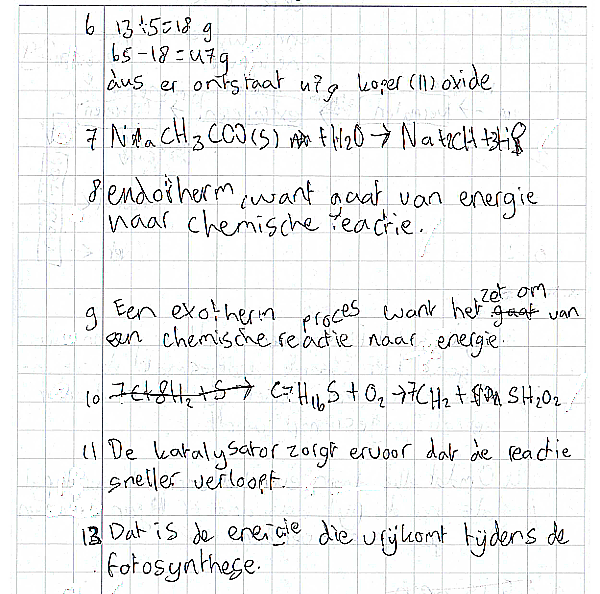 6 13+5=18 g
65-18=47g
dus er ontstaat 47g koper(II)oxide
7 CH3COO(s) + H2O → Na+2CH+3H
8 endotherm, want gaat van energie
naar chemische reactie.
zet om
9 Een exotherm proces want het gaat van
een chemische reactie naar energie.
10 7C+8H2+S→ C7H16S+O2→7CH2+ SH2O2
11 De katalysator zorgt ervoor dat de reactie
sneller verloopt.
13 Dat is de energie die vrijkomt tijdens de
fotosynthese.